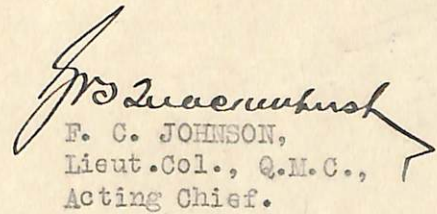 F. C. JOHNSON,
Lieut.Col., Q.M.C.,
Acting Chief.